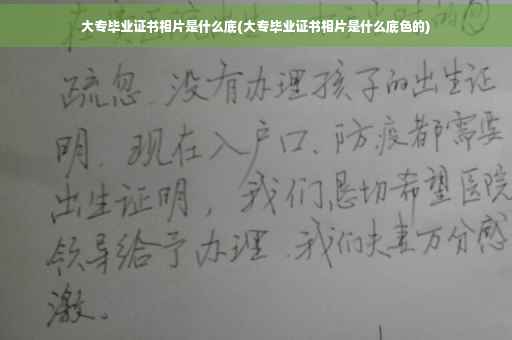 大专毕业证书相片是什么底(大专毕业证书相片是什么底色的)
疏忽、没有办理孩子的出生证
明、现在入户口、防疫都需要
出生证明，我们恳切希望医院
领导给予办理、我们夫妻万分感
激。